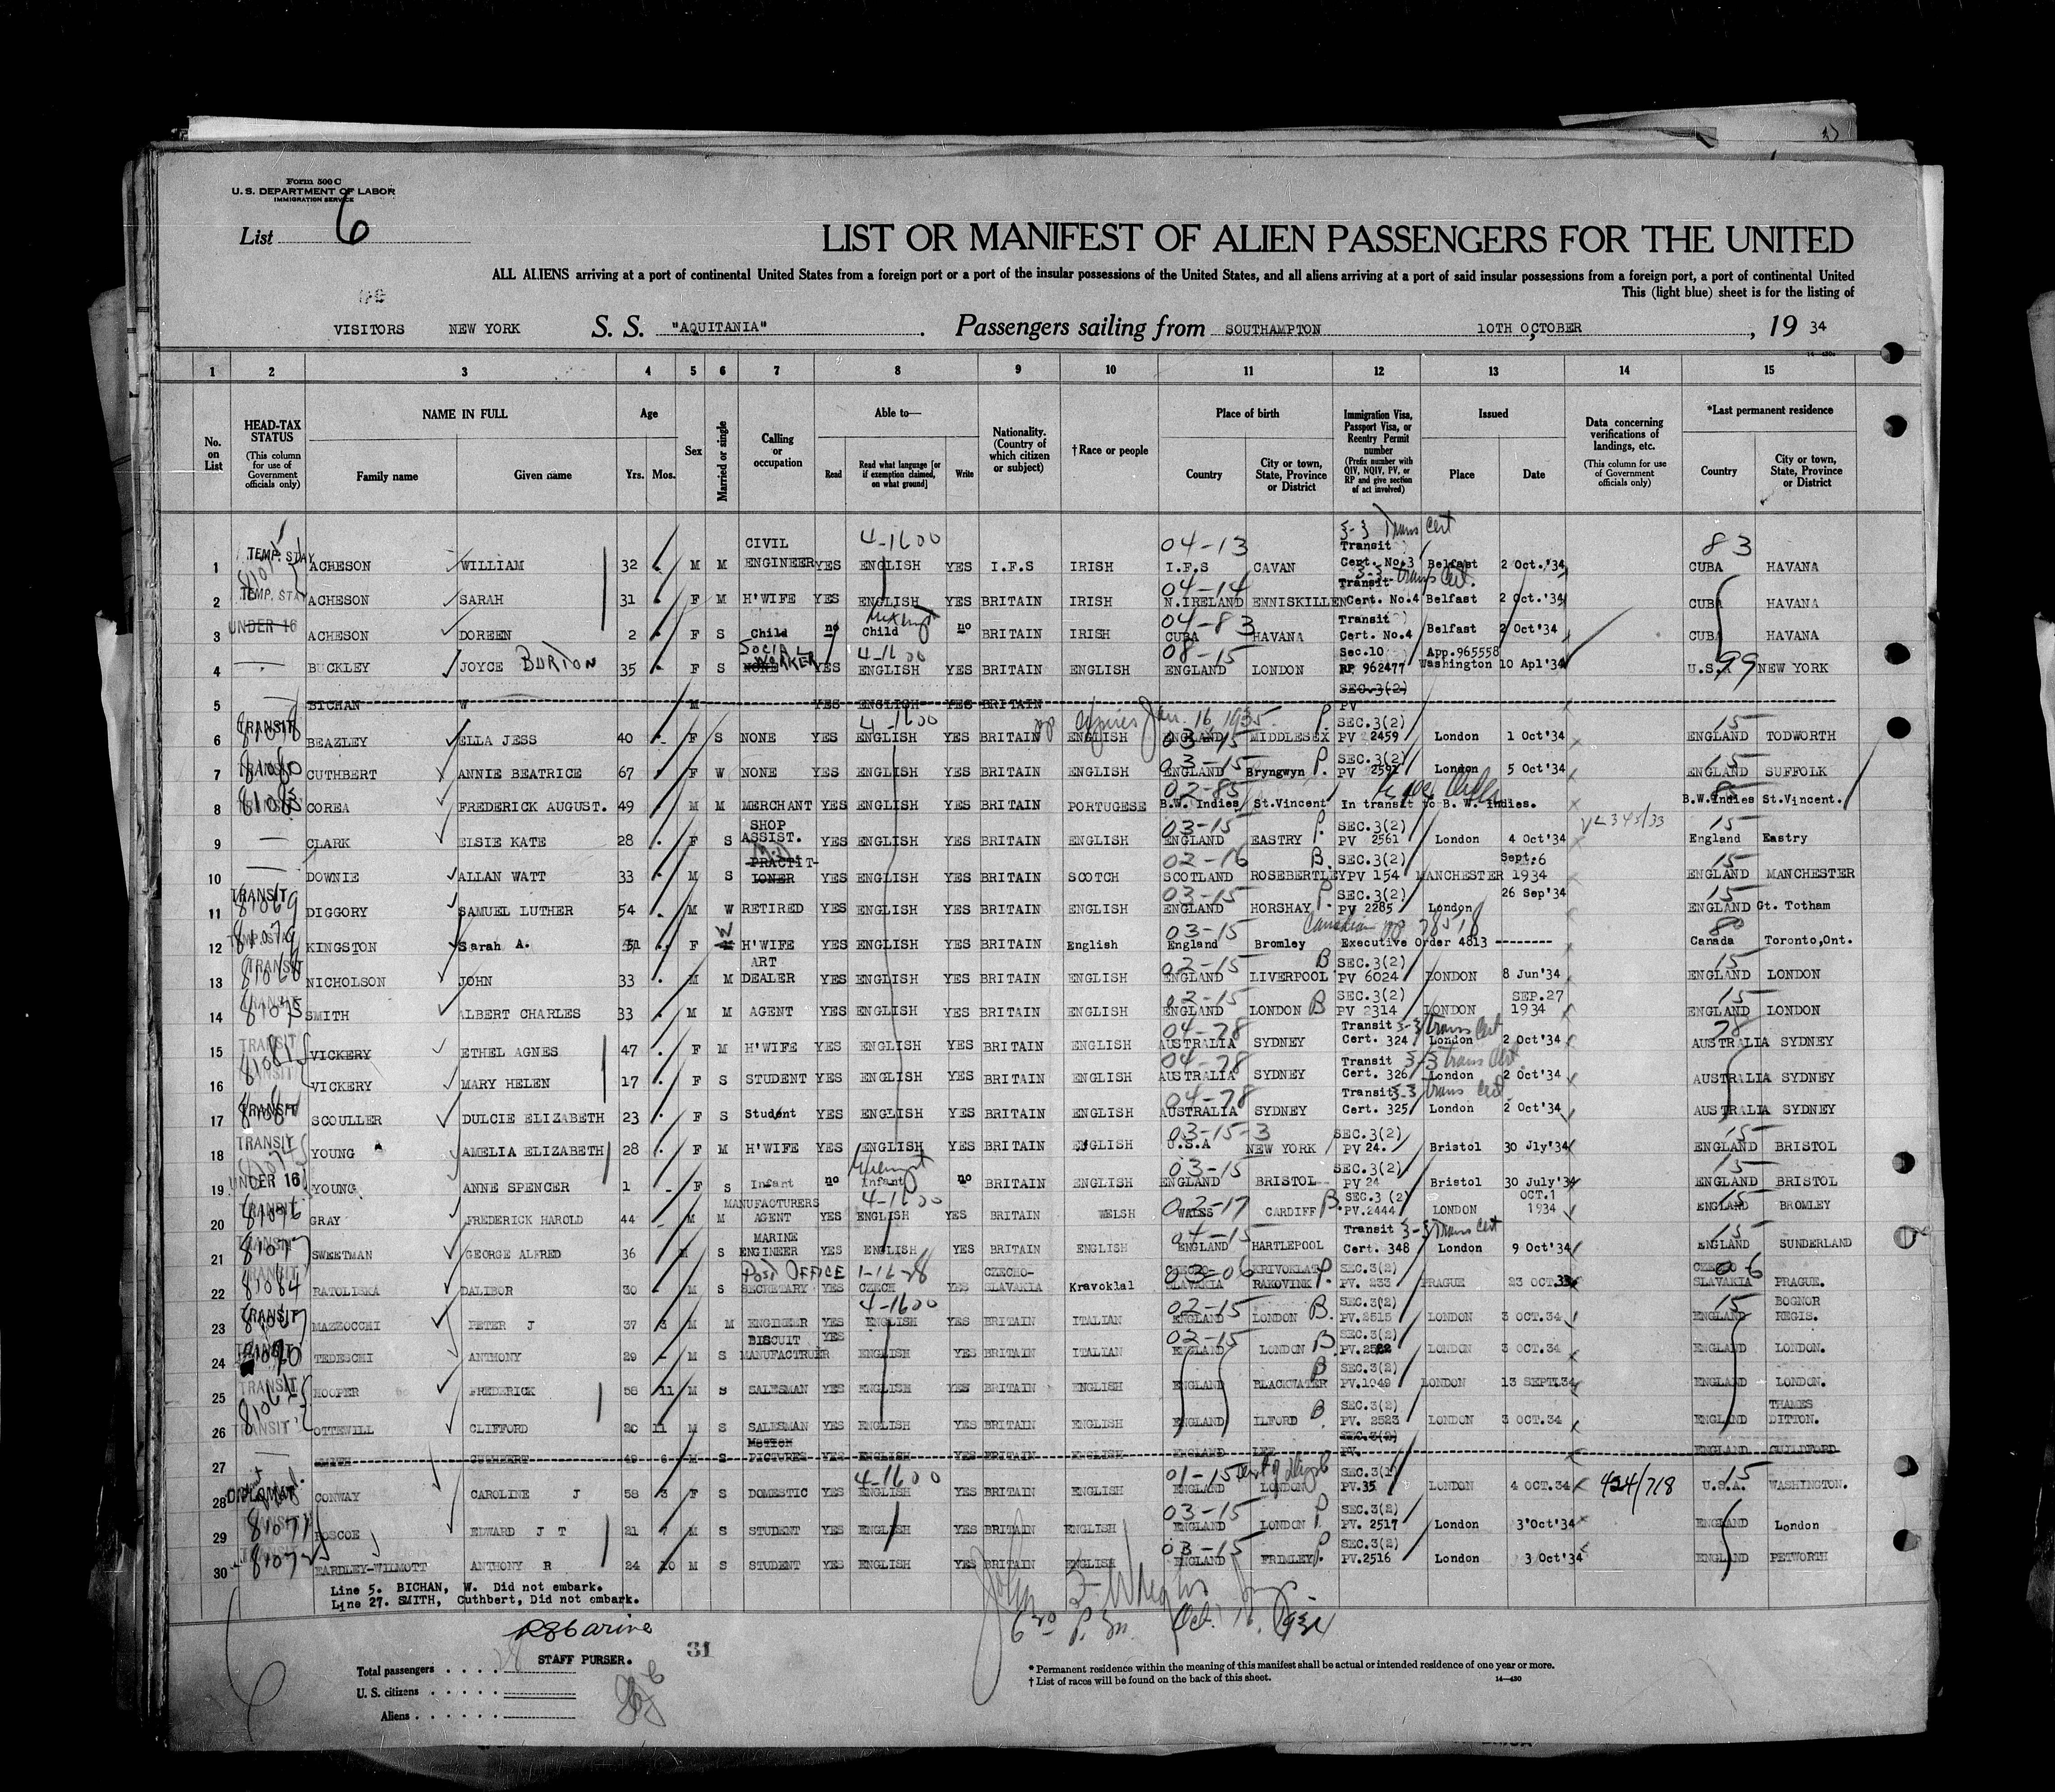 Form 500 C
U. S. DEPARTMENT OF LABOR
IMMIGRATION SERVICE
List 6
LIST OR MANIFEST OF ALIEN PASSENGERS FOR THE UNITED
ALL ALIENS arriving at a port of continental United States from a foreign port or a port of the insular possessions of the United States, and all aliens arriving at a port of said insular possessions from a foreign port, a port of continental United
This (light blue) sheet is for the listing of
VISITORS NEW YORK S. S. "AQUITANIA" . Passengers sailing from SOUTHAMPTON 10TH OCTOBER , 19 34
14—430
1 2 3 4 5 6 7 8 9 10 11 12 13 14 15
No. on List
HEAD-TAX STATUS (This column for use of Government officials only)
NAME IN FULL Family name Given name
Age Yrs. Mos.
Sex
Married or single
Calling or occupation
Able to— Read Read what language [or if exemption claimed, on what ground] Write
Nationality. (Country of which citizen or subject)
†Race or people
Place of birth Country City or town, State, Province or District
Immigration Visa, Passport Visa, or Reentry Permit number (Prefix number with QIV, NQIV, PV, or RP and give section of act involved)
Issued Place Date
Data concerning verifications of landings, etc. (This column for use of Government officials only)
*Last permanent residence Country City or town, State, Province or District
4-1600 04-13 3-3 Trans Cert 83
1 TEMP. STAY ACHESON WILLIAM 32 M M CIVIL ENGINEER YES ENGLISH YES I.F.S IRISH I.F.S CAVAN Transit Cert. No.3 Belfast 2 Oct.'34 CUBA HAVANA
04-14 3-3 trans Cert.
2 TEMP. STAY ACHESON SARAH 31 F M H'WIFE YES ENGLISH YES BRITAIN IRISH N.IRELAND ENNISKILLEN Transit Cert. No.4 Belfast 2 Oct.'34 CUBA HAVANA
04-83
3 UNDER 16 ACHESON DOREEN 2 F S Child no Child no BRITAIN IRISH CUBA HAVANA Transit Cert. No.4 Belfast 2 Oct'34 CUBA HAVANA
4-1600 08-15 99
4 BUCKLEY JOYCE BURTON 35 F S NONE SOCIAL WORKER YES ENGLISH YES BRITAIN ENGLISH ENGLAND LONDON Sec.10 RP 962477 App.965558 Washington 10 Apl'34 U.S.A NEW YORK
5 BICHAN W M YES ENGLISH YES BRITAIN SEC.3(2) PV
4-1600 pp expires Jan. 16, 1935 P. 03-15 15
6 TRANSIT 81078 BEAZLEY ELLA JESS 40 F S NONE YES ENGLISH YES BRITAIN ENGLISH ENGLAND MIDDLESEX SEC.3(2) PV 2459 London 1 Oct'34 ENGLAND TODWORTH
03-15 15
7 TRANSIT 81080 CUTHBERT ANNIE BEATRICE 67 F W NONE YES ENGLISH YES BRITAIN ENGLISH ENGLAND Bryngwyn P. SEC.3(2) PV 2592 London 5 Oct'34 ENGLAND SUFFOLK
02-85 85
8 81085 COREA FREDERICK AUGUST. 49 M M MERCHANT YES ENGLISH YES BRITAIN PORTUGESE B.W. Indies St.Vincent In transit to B. W. Indies. B.W.Indies St.Vincent.
03-15 15
9 CLARK ELSIE KATE 28 F S SHOP ASSIST. YES ENGLISH YES BRITAIN ENGLISH ENGLAND EASTRY P. SEC.3(2) PV 2561 London 4 Oct'34 England Eastry
02-16 15
10 DOWNIE ALLAN WATT 33 M S PRACTIT-IONER YES ENGLISH YES BRITAIN SCOTCH SCOTLAND ROSEBERTLEY B. SEC.3(2) PV 154 MANCHESTER Sept.6 1934 ENGLAND MANCHESTER
03-15 15
11 TRANSIT 81069 DIGGORY SAMUEL LUTHER 54 M W RETIRED YES ENGLISH YES BRITAIN ENGLISH ENGLAND HORSHAY P. SEC.3(2) PV 2285 London 26 Sep'34 ENGLAND Gt. Totham
03-15 Canadian pp 78518 80
12 TEMP. STAY 81079 KINGSTON Sarah A. 51 F W H'WIFE YES ENGLISH YES BRITAIN English England Bromley Executive Order 4813 -------- Canada Toronto,Ont.
02-15 15
13 TRANSIT 81068 NICHOLSON JOHN 33 M M ART DEALER YES ENGLISH YES BRITAIN ENGLISH ENGLAND LIVERPOOL B SEC.3(2) PV 6024 LONDON 8 Jun'34 ENGLAND LONDON
02-15 15
14 TRANSIT 81075 SMITH ALBERT CHARLES 33 M M AGENT YES ENGLISH YES BRITAIN ENGLISH ENGLAND LONDON B SEC.3(2) PV 2314 LONDON SEP.27 1934 ENGLAND LONDON
04-78 3-3 trans Cert 78
15 TRANSIT VICKERY ETHEL AGNES 47 F M H'WIFE YES ENGLISH YES BRITAIN ENGLISH AUSTRALIA SYDNEY Transit Cert. 324 London 2 Oct'34 AUSTRALIA SYDNEY
04-78 3-3 trans Cert.
16 TRANSIT VICKERY MARY HELEN 17 F S STUDENT YES ENGLISH YES BRITAIN ENGLISH AUSTRALIA SYDNEY Transit Cert. 326 London 2 Oct'34 AUSTRALIA SYDNEY
04-78 3-3 trans Cert.
17 TRANSIT SCOULLER DULCIE ELIZABETH 23 F S Student YES ENGLISH YES BRITAIN ENGLISH AUSTRALIA SYDNEY Transit Cert. 325 London 2 Oct'34 AUSTRALIA SYDNEY
03-15-3 15
18 TRANSIT 81074 YOUNG AMELIA ELIZABETH 28 F M H'WIFE YES ENGLISH YES BRITAIN ENGLISH U.S.A NEW YORK SEC.3(2) PV 24. Bristol 30 Jly'34 ENGLAND BRISTOL
Exempt 03-15 15
19 UNDER 16 YOUNG ANNE SPENCER 1 F S Infant no Infant no BRITAIN ENGLISH ENGLAND BRISTOL SEC.3(2) PV 24 Bristol 30 July'34 ENGLAND BRISTOL
4-1600 02-17 15
20 TRANSIT 81076 GRAY FREDERICK HAROLD 44 M M MANUFACTURERS AGENT YES ENGLISH YES BRITAIN WELSH WALES CARDIFF B. SEC.3 (2) PV.2444 LONDON OCT.1 1934 ENGLAND BROMLEY
04-15 3-3 Trans Cert 15
21 TRANSIT 81077 SWEETMAN GEORGE ALFRED 36 M S MARINE ENGINEER YES ENGLISH YES BRITAIN ENGLISH ENGLAND HARTLEPOOL Transit Cert. 348 London 9 Oct'34 ENGLAND SUNDERLAND
POST OFFICE 1-1628 03-06 06
22 TRANSIT 81084 RATOLISKA DALIBOR 30 M S SECRETARY YES CZECH YES CZECHO-SLAVAKIA Kravoklal CZECHO-SLAVAKIA KRIVOKLAT RAKOVINK P. SEC.3(2) PV. 233 PRAGUE 23 OCT.33 CZECHO SLAVAKIA PRAGUE.
4-1600 02-15 15
23 TRANSIT MAZZOCCHI PETER J 37 3 M M ENGINEER YES ENGLISH YES BRITAIN ITALIAN ENGLAND LONDON B. SEC.3(2) PV.2515 LONDON 3 OCT.34 ENGLAND BOGNOR REGIS.
02-15
24 TRANSIT TEDESCHI ANTHONY 29 - M S BISCUIT MANUFACTRUER YES ENGLISH YES BRITAIN ITALIAN ENGLAND LONDON B SEC.3(2) PV.2522 LONDON 3 OCT.34 ENGLAND LONDON.
25 TRANSIT HOOPER FREDERICK 58 11 M S SALESMAN YES ENGLISH YES BRITAIN ENGLISH ENGLAND BLACKWATER B SEC.3(2) PV.1949 LONDON 13 SEPT.34 ENGLAND LONDON.
26 TRANSIT OTTEWILL CLIFFORD 20 11 M S SALESMAN YES ENGLISH YES BRITAIN ENGLISH ENGLAND ILFORD B SEC.3(2) PV. 2523 LONDON 3 OCT.34 ENGLAND THAMES DITTON.
27 SMITH CUTHBERT 49 6 M S MOTION PICTURES YES ENGLISH YES BRITAIN ENGLISH ENGLAND LEE SEC.3(2) PV. ENGLAND GUILDFORD
4-1600 01-15 15
28 DIPLOMAT CONWAY CAROLINE J 58 3 F S DOMESTIC YES ENGLISH YES BRITAIN ENGLISH ENGLAND LONDON SEC.3(1) PV.35 LONDON 4 OCT.34 424/718 U.S.A. WASHINGTON.
03-15
29 TRANSIT 81071 ROSCOE EDWARD J T 21 7 M S STUDENT YES ENGLISH YES BRITAIN ENGLISH ENGLAND LONDON P. SEC.3(2) PV. 2517 London 3'Oct'34 ENGLAND London
03-15
30 TRANSIT 81072 EARDLEY-WILMOTT ANTHONY R 24 10 M S STUDENT YES ENGLISH YES BRITAIN ENGLISH ENGLAND FRIMLEY P. SEC.3(2) PV.2516 London 3 Oct'34 ENGLAND PETWORTH
Line 5. BICHAN, W. Did not embark.
Line 27. SMITH, Cuthbert, Did not embark.
Oct. 16, 1934
STAFF PURSER.
31
Total passengers . . . .
U. S. citizens . . . . .
Aliens . . . . . .
* Permanent residence within the meaning of this manifest shall be actual or intended residence of one year or more.
† List of races will be found on the back of this sheet.
14—430